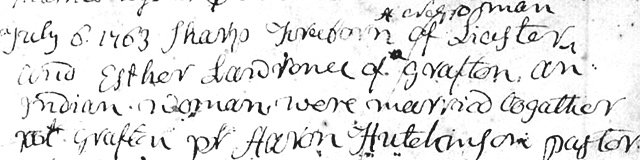 A negro man
July 6. 1763 Sharp Freeborn of Liester
and Esther Lardroner of Grafton, an
Indian woman were married togather
att Grafton pr Aaron Hutchinson pastor